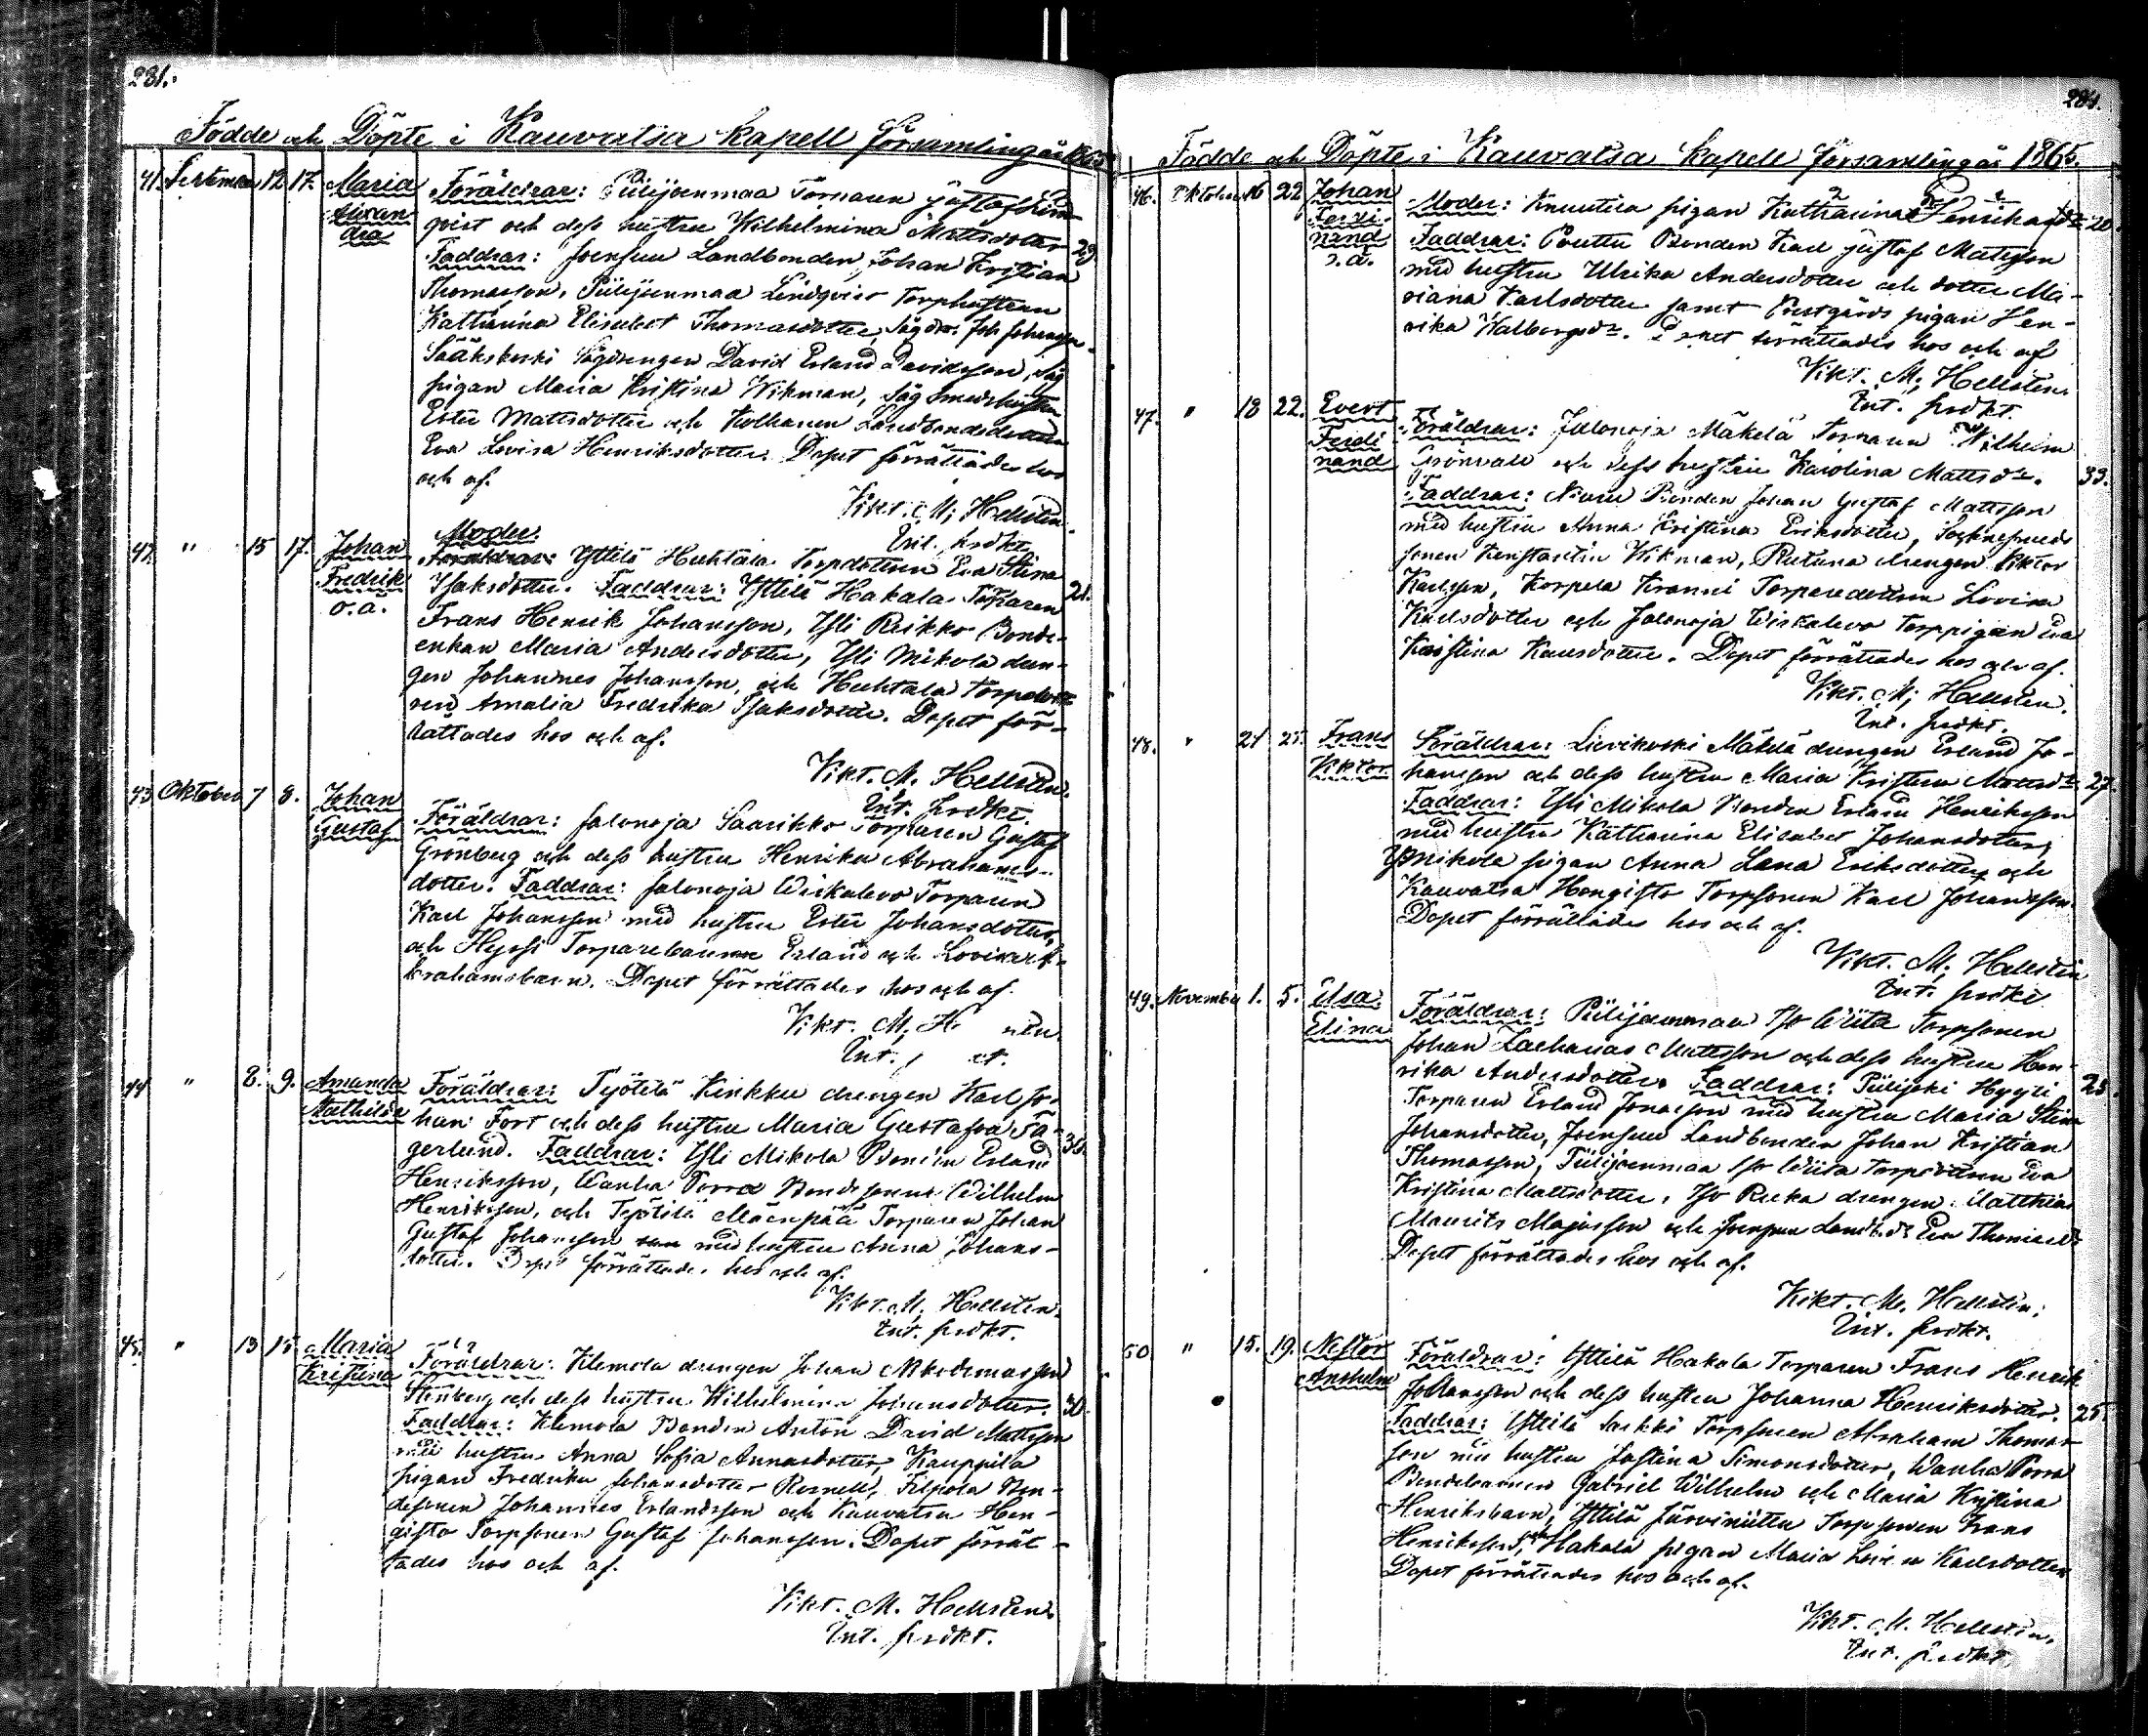 281.
Födde och Döpte i Kauvatsa kapell församling år 1865
41. September 12 17. Maria Alexandra Föräldrar: Piilijoenmaa Torparen Gustaf Lind-
qvist och dess hustru Wilhelmina Mattsdotter 29
Faddrar: Joensuu Landbonden Johan Kristian
Thomasson, Piilijoenmaa Lindqvist Torphustrun
Katharina Elisabet Thomasdotter, Sågdr. Joh. Johansson
Sääkskoski Sågdrengen David Erland Davidsson, Såg
pigan Maria Kristina Wikman, Såg smedshustrun
Ester Mattsdotter och Kolhanen Landbondsdottren
Eva Lovisa Henriksdotter. Dopet förrättades hos
och af.
Vikt. M. Hellstén.
Ent. predkt.
42. " 15 17. Johan Fredrik o.a. Moder:
Föräldrar: Yttilä Huhtala Torpdottren Eva Stina
Isaksdotter. Faddrar: Yttilä Hakala Torparen 21.
Frans Henrik Johansson, Yli Reikko Bonde-
enkan Maria Andersdotter, Yli Mikola dren-
gen Johannes Johansson, och Huhtala Torpdott-
ren Amalia Fredrika Isaksdotter. Dopet för-
rättades hos och af.
Vikt. M. Hellstén.
Ent. predkt.
43 Oktober 7 8. Johan Gustaf Föräldrar: Jalonoja Saarikko Torparen Gustaf
Grönberg och dess hustru Henrika Abrahams-
dotter. Faddrar: Jalonoja Wiskalevo Torparen
Karl Johansson med hustru Ester Johansdotter,
och Hyssi Torparebarnen Erland och Lovisa A-
brahamsbarn. Dopet förrättades hos och af.
Vikt. M. H
Ent.
44 " 8. 9. Amanda Mathilda Föräldrar: Työtilä Kinkku drengen Karl Jo-
han Fort och dess hustru Maria Gustafva Fa-
gerlund. Faddrar: Yli Mikola Bonden Erland 36.
Henriksson, Wanha Porra Bondsonen Wilhelm
Henriksson, och Työtilä Mäenpää Torparen Johan
Gustaf Johansson med hustru Anna Johans-
dotter. Dopet förrättades hos och af.
Vikt. M. Hellstén.
Ent. predkt.
45. " 13 15 Maria Kristina Föräldrar: Klemola drengen Johan Nikodemusson
Stenberg och dess hustru Wilhelmina Johansdotter. 30.
Faddrar: Klemola Bonden Anton David Mattsson
med hustru Anna Sofia Annasdotter, Kauppila
pigan Fredrika Johansdotter Rosnell, Filpola Bon-
desonen Johannes Erlandsson och Kauvatsa Hon-
gisto Torpsonen Gustaf Johansson. Dopet förrät-
tades hos och af.
Vikt. M. Hellstén.
Ent. predkt.
281.
Födde och Döpte i Kauvatsa kapell församling år 1865.
46. Oktober 16 22 Johan Ferdinand o.a. Moder: Knuutila pigan Katharina Henrika 20.
Faddrar: Pouttu Bonden Karl Gustaf Mattsson
med hustru Ulrika Andersdotter och dotter Ma-
riana Karlsdotter samt Prestgårds pigan Hen-
rika Walborgsdr. Dopet förrättades hos och af
Vikt. M. Hellstén
Ent. predkt.
47. " 18 22. Evert Ferdinand Föräldrar: Jalonoja Mäkelä Torparen Wilhelm
Grönvall och dess hustru Karolina Mattsdr. 33.
Faddrar: Bonden Johan Gustaf Mattsson
med hustru Anna Kristina Eriksdotter, Socknesmeds
sonen Konstantin Wikman, drengen Viktor
Karlsson, Korpela Kranni Torparedottren Lovisa
Karlsdotter och Jalonoja Wiskalevo Torppigan Eva
Kristina Karlsdotter. Dopet förrättades hos och af.
Vikt. M. Hellstén.
Ent. predkt.
48. " 21 25. Frans Viktor Föräldrar: Lievikoski Mäkelä drengen Erland Jo-
hansson och dess hustru Maria Kristina Mattsdr 27.
Faddrar: Yli Mikola Bonden Erland Henriksson
med hustru Katharina Elisabet Johansdotter,
Yli Mikola pigan Anna Lena Eriksdotter och
Kauvatsa Hongisto Torpsonen Karl Johansson.
Dopet förrättades hos och af.
Vikt. M. Hellstén
Ent. predkt
49. November 1. 5. Elsa Elina Föräldrar: Piilijoenmaa Iso Wiita Torpsonen
Johan Zacharias Mattsson och dess hustru Hen-
rika Andersdotter. Faddrar: Piilijoki Hyysti 23.
Torparen Erland Jonasson med hustru Maria Stina
Johansdotter, Joensuu Landbonden Johan Kristian
Thomasson, Piilijoenmaa Iso Wiita Torpdottren Eva
Kristina Mattsdotter, Iso drengen Matthias
Maurits Majasson och Joensuu Landb. dr Eva Thomasdr
Dopet förrättades hos och af.
Vikt. M. Hellstén.
Ent. predkt.
50 " 15. 19. Nestor Anshelm Föräldrar: Yttilä Hakala Torparen Frans Henrik
Johansson och dess hustru Johanna Henriksdotter. 25.
Faddrar: Yttilä Torpsonen Abraham Thomas-
son med hustru Justina Simonsdotter, Wanha Porra
Bondebarnen Gabriel Wilhelm och Maria Kristina
Henriksbarn, Yttilä Järviniittu Torpsonen Frans
Henriksson, och Hakala pigan Maria Lovisa Karlsdotter
Dopet förrättades hos och af.
Vikt. M. Hellstén.
Ent. predkt